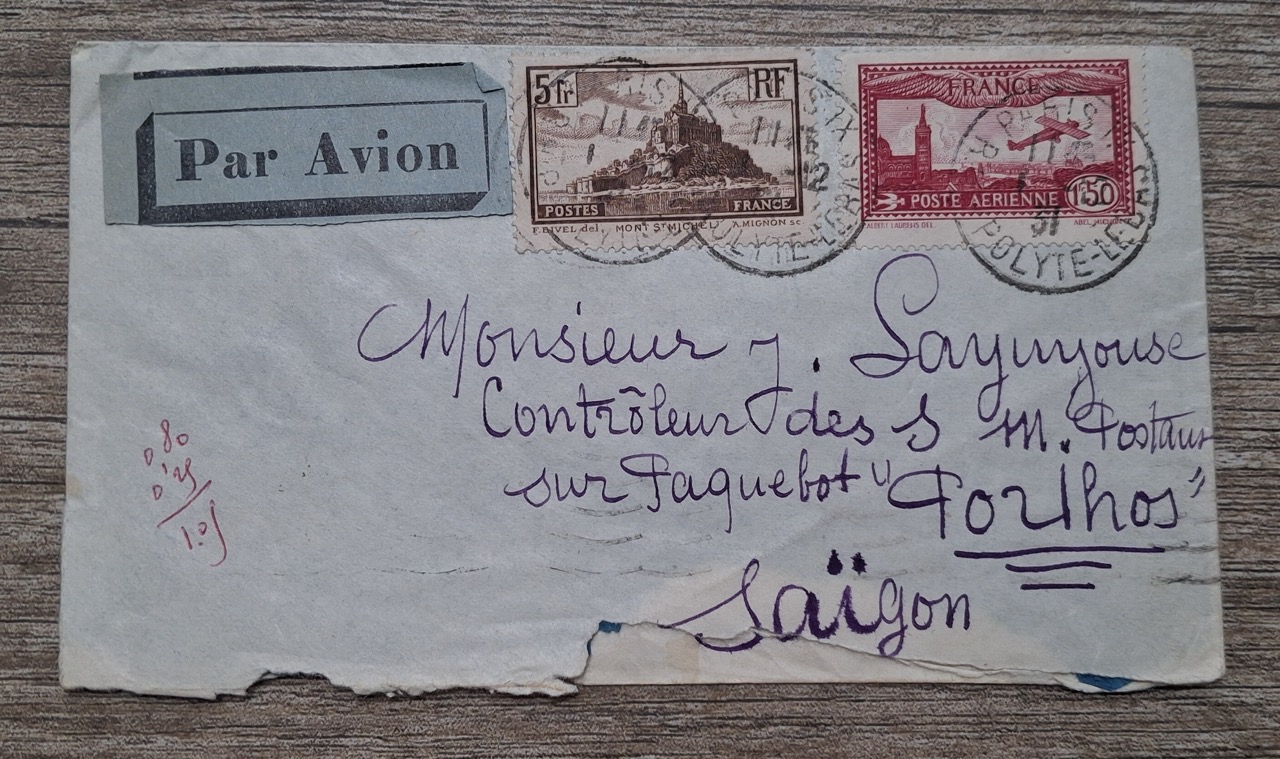 Par Avion
5fr RF
POSTES FRANCE
F. BIVEL del. MONT ST MICHEL A. MIGNON sc.
FRANCE
POSTE AERIENNE 1F50
ALBERT LAURENS DEL.
PARIS
11
31
POLYTE-LEBAS
Monsieur J.
Contrôleur des S M. Postaux
sur Paquebot "Porthos"
Saïgon
0 80
0'25
1.05